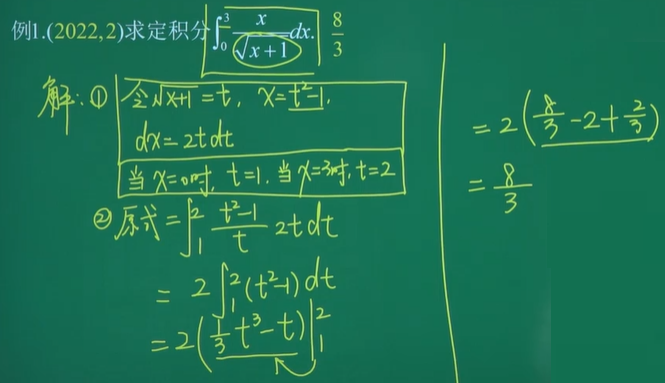 例1.(2022,2)求定积分∫₀³ x/√(x+1) dx. 8/3
解:① 令√(x+1)=t, x=t²-1,
dx=2tdt
当x=0时, t=1. 当x=3时, t=2
② 原式=∫₁² (t²-1)/t 2tdt
=2∫₁²(t²-1)dt
=2(1/3 t³-t)|₁²
=2(8/3-2+2/3)
=8/3